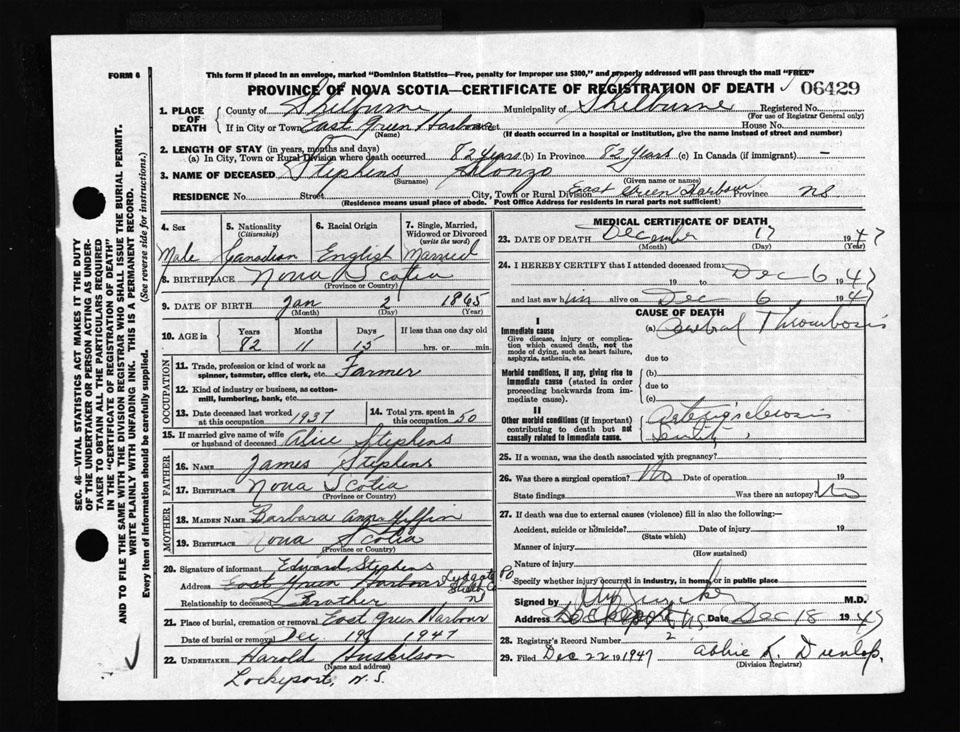 FORM 6
This form if placed in an envelope, marked "Dominion Statistics—Free, penalty for improper use $300," and properly addressed will pass through the mail "FREE"
PROVINCE OF NOVA SCOTIA—CERTIFICATE OF REGISTRATION OF DEATH
06429
1. PLACE OF DEATH
County of Shelburne
Municipality of Shelburne
Registered No.
(For use of Registrar General only)
If in City or Town East Green Harbour
House No.
(Name)
(If death occurred in a hospital or institution, give the name instead of street and number)
2. LENGTH OF STAY (in years, months and days)
(a) In City, Town or Rural Division where death occurred 82 years (b) In Province 82 years (c) In Canada (if immigrant) —
3. NAME OF DECEASED Stephens Alonzo
(Surname) (Given name or names)
RESIDENCE No. Street City, Town or Rural Division East Green Harbour Province NS
(Residence means usual place of abode. Post Office Address for residents in rural parts not sufficient)
4. Sex
Male
5. Nationality (Citizenship)
Canadian
6. Racial Origin
English
7. Single, Married, Widowed or Divorced (write the word)
Married
8. BIRTHPLACE Nova Scotia
(Province or Country)
9. DATE OF BIRTH Jan 2 1865
(Month) (Day) (Year)
10. AGE in
Years Months Days If less than one day old
82 11 15 hrs. or min.
OCCUPATION
11. Trade, profession or kind of work as spinner, teamster, office clerk, etc. Farmer
12. Kind of industry or business, as cotton-mill, lumbering, bank, etc.
13. Date deceased last worked at this occupation 1937
14. Total yrs. spent in this occupation 50
15. If married give name of wife or husband of deceased Alice Stephens
FATHER
16. NAME James Stephens
17. BIRTHPLACE Nova Scotia
(Province or Country)
MOTHER
18. MAIDEN NAME Barbara Ann
19. BIRTHPLACE Nova Scotia
(Province or Country)
20. Signature of informant Edward Stephens
Address East Green Harbour
Relationship to deceased Brother
21. Place of burial, cremation or removal East Green Harbour
Date of burial or removal Dec. 19 1947
22. UNDERTAKER Harold Huskilson
(Name and address)
Lockeport, N.S.
MEDICAL CERTIFICATE OF DEATH
23. DATE OF DEATH December 17 1947
(Month) (Day) (Year)
24. I HEREBY CERTIFY that I attended deceased from:
19 to Dec 6 1947
and last saw him alive on Dec 6 1947
CAUSE OF DEATH
I
Immediate cause
Give disease, injury or complication which caused death, not the mode of dying, such as heart failure, asphyxia, asthenia, etc.
(a) Cerebral Thrombosis
due to
Morbid conditions, if any, giving rise to immediate cause (stated in order proceeding backwards from immediate cause)
(b)
due to
(c)
II
Other morbid conditions (if important) contributing to death but not causally related to immediate cause.
Arteriosclerosis
Senility
25. If a woman, was the death associated with pregnancy?
26. Was there a surgical operation? No Date of operation 19
State findings Was there an autopsy? No
27. If death was due to external causes (violence) fill in also the following:—
Accident, suicide or homicide? Date of injury 19
(State which)
Manner of injury
(How sustained)
Nature of injury
Specify whether injury occurred in industry, in home, or in public place
Signed by M.D.
Address Lockeport N.S. Date Dec 18 1947
28. Registrar's Record Number 2
29. Filed Dec 22 1947 Abbie K. Dunlop
(Division Registrar)
SEC. 46—VITAL STATISTICS ACT MAKES IT THE DUTY OF THE UNDERTAKER OR PERSON ACTING AS UNDERTAKER TO OBTAIN ALL THE PARTICULARS REQUIRED IN THE "CERTIFICATE OF REGISTRATION OF DEATH" AND TO FILE THE SAME WITH THE DIVISION REGISTRAR WHO SHALL ISSUE THE BURIAL PERMIT.
WRITE PLAINLY WITH UNFADING INK. THIS IS A PERMANENT RECORD.
Every item of information should be carefully supplied. (See reverse side for instructions.)